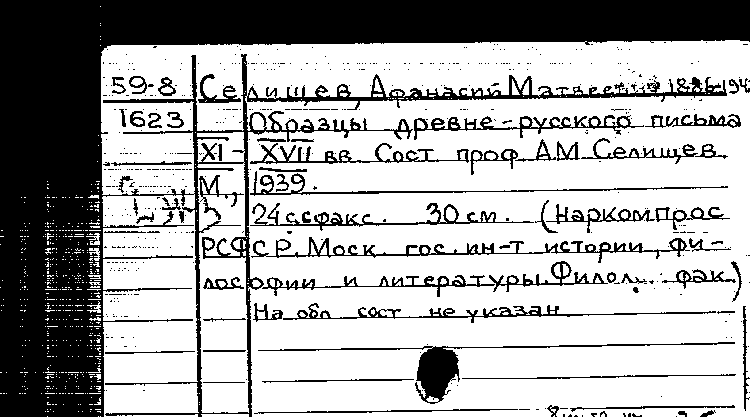 59-8 Селищев, Афанасий Матвеевич, 1886-194
1623 Образцы древне-русского письма
XI - XVII вв. Сост. проф. А.М. Селищев.
М., 1939.
24 с. с факс. 30 см. (Наркомпрос
РСФСР. Моск. гос. ин-т истории, фи-
лософии и литературы. Филол. фак.)
На обл. сост. не указан